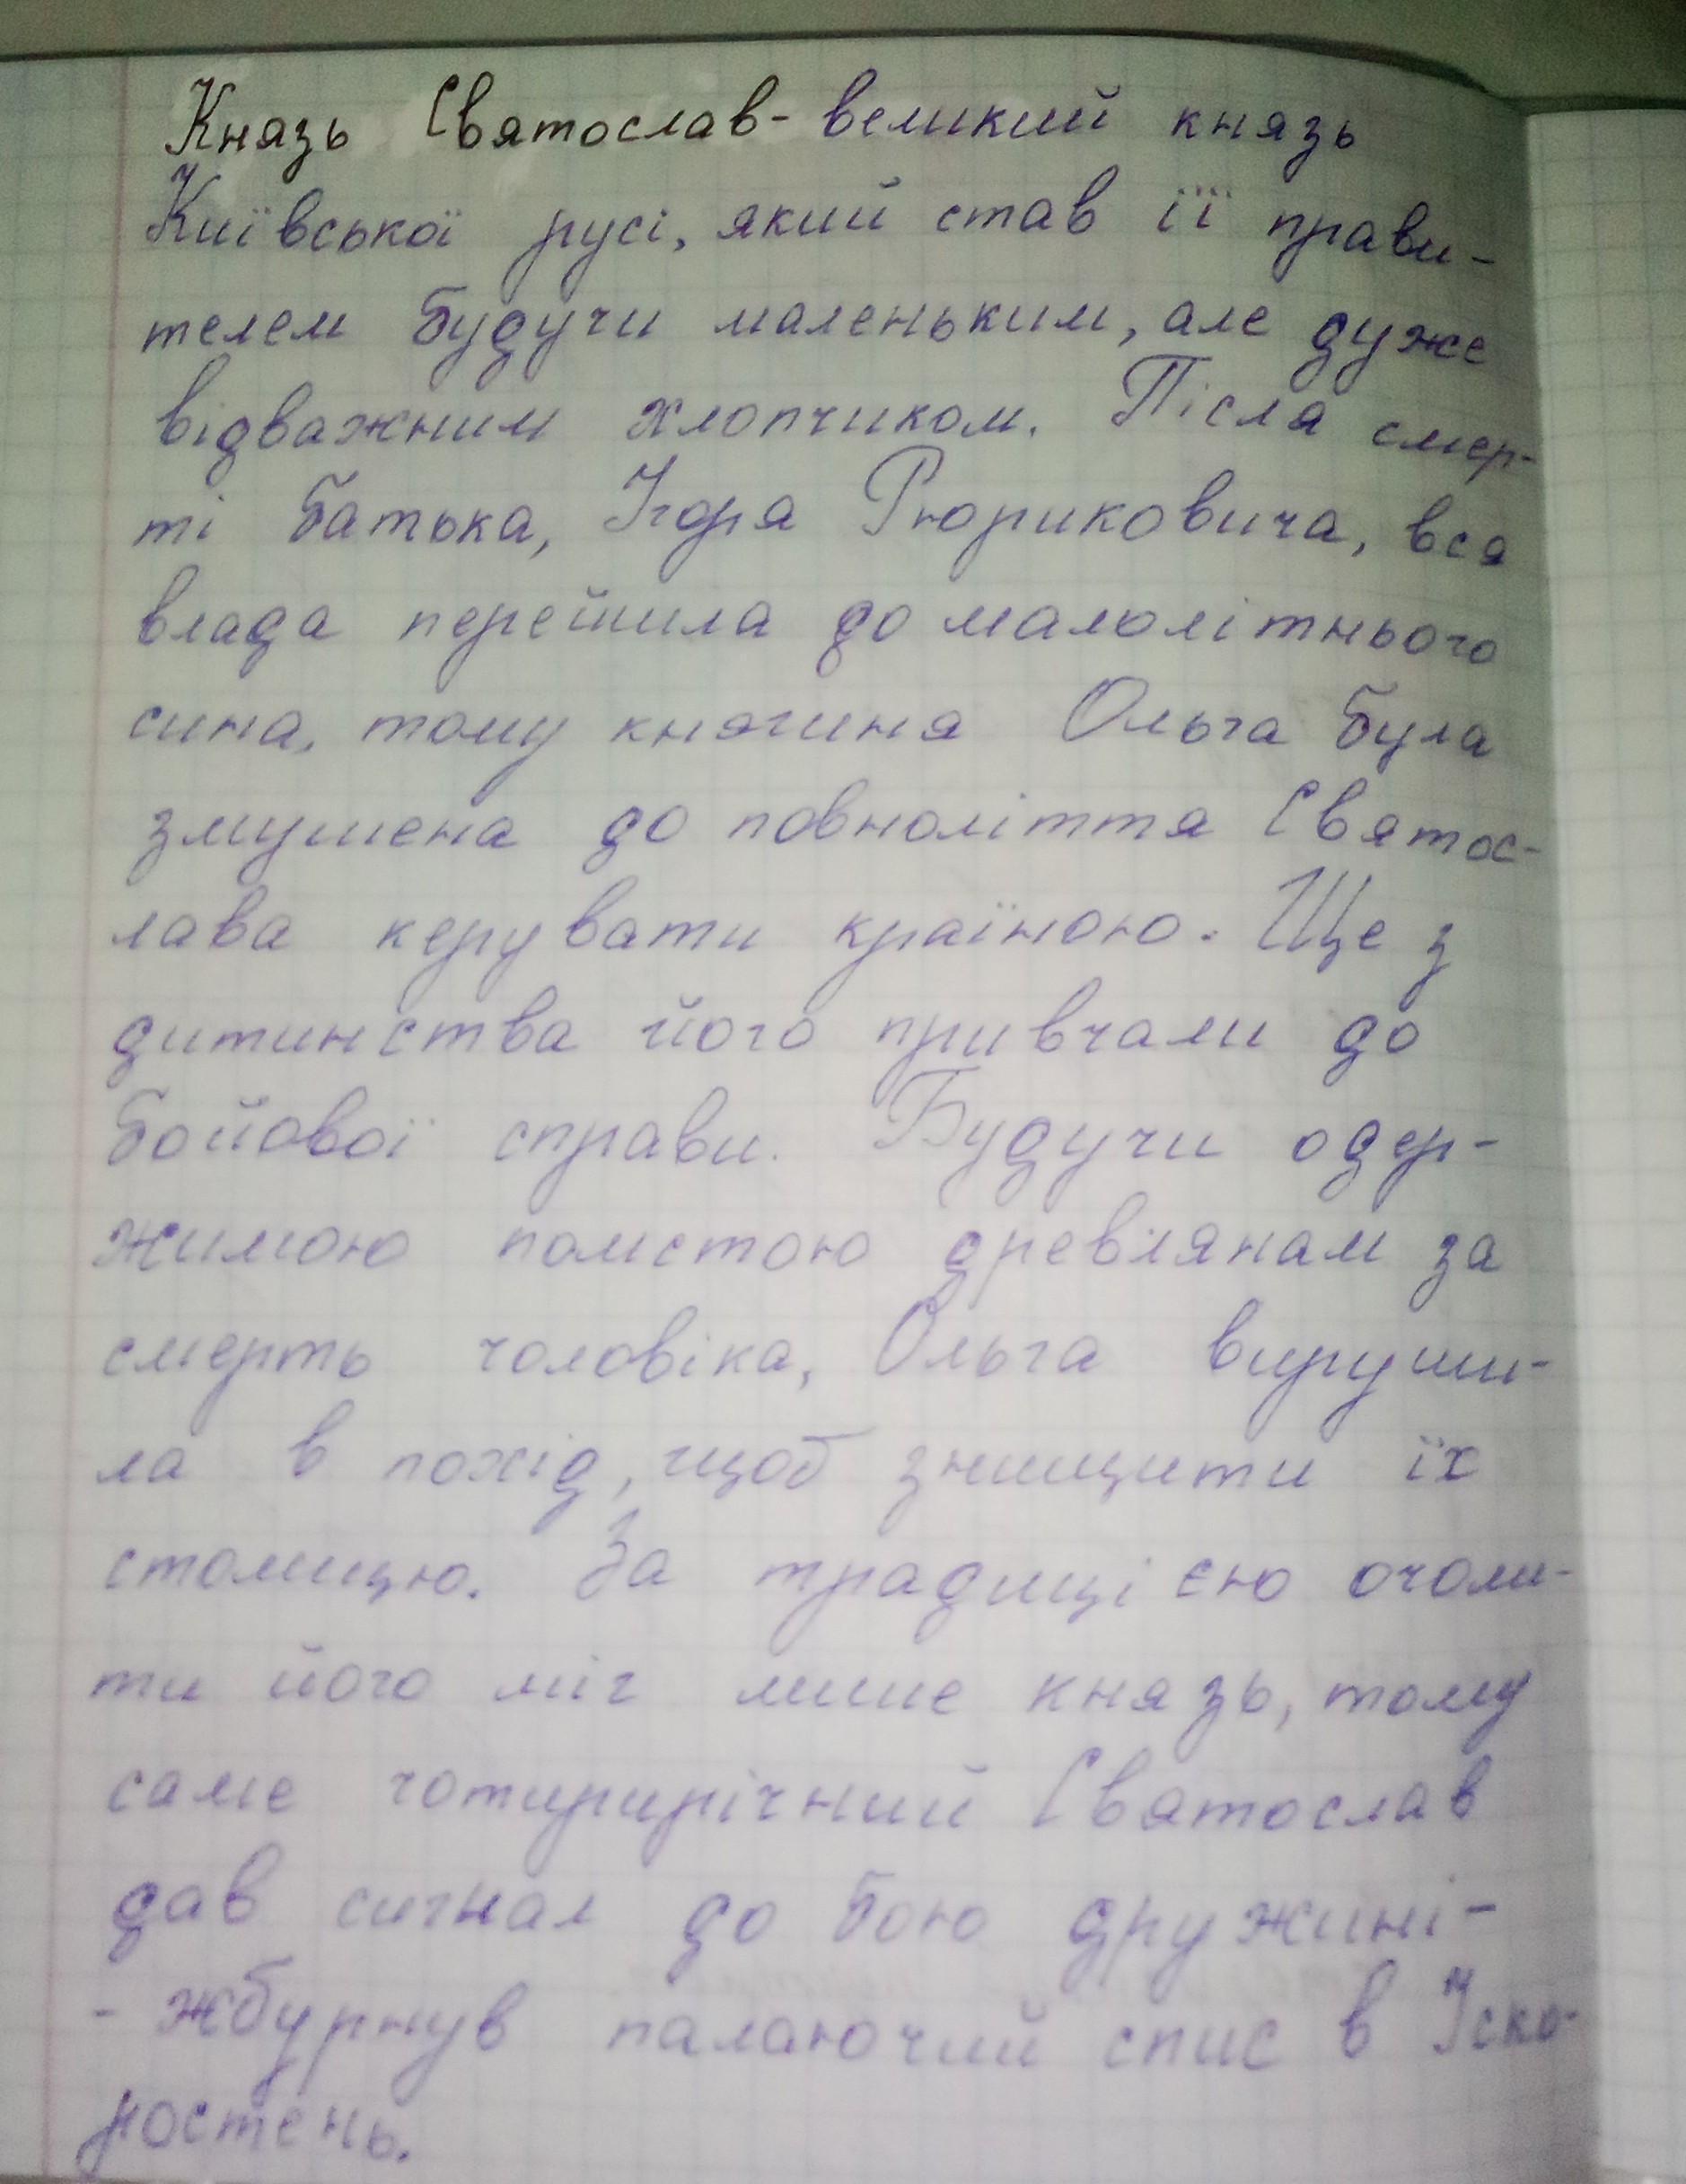 Князь Святослав - великий князь
Київської русі, який став її прави-
телем будучи маленьким, але дуже
відважним хлопчиком. Після смер-
ті батька, Ігоря Рюриковича, вся
влада перейшла до малолітнього
сина, тому княгиня Ольга була
змушена до повноліття Святос-
лава керувати країною. Ще з
дитинства його привчали до
бойової справи. Будучи одер-
жимою помстою древлянам за
смерть чоловіка, Ольга вируши-
ла в похід, щоб знищити їх
столицю. За традицією очоли-
ти його міг лише князь, тому
саме чотирирічний Святослав
дав сигнал до бою дружині -
- жбурнув палаючий спис в Іско-
ростень.